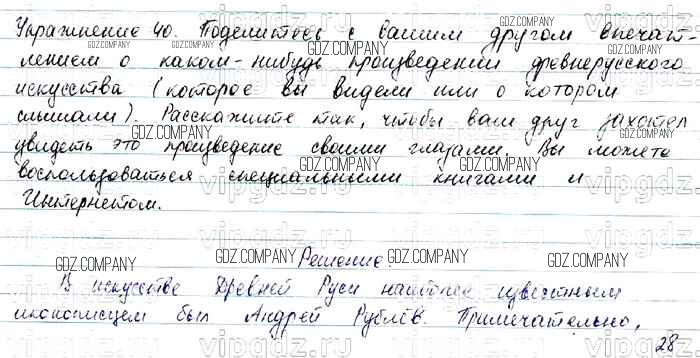 Упражнение 40. Поделитесь с вашим другом впечат-
лением о каком-нибудь произведении древнерусского
искусства (которое вы видели или о котором
слышали). Расскажите так, чтобы ваш друг захотел
увидеть это произведение своими глазами. Вы можете
воспользоваться специальными книгами и
Интернетом.
Решение.
В искусстве Древней Руси наиболее известным
иконописцем был Андрей Рублёв. Примечательно,
28
GDZ.COMPANY
vipgdz.ru